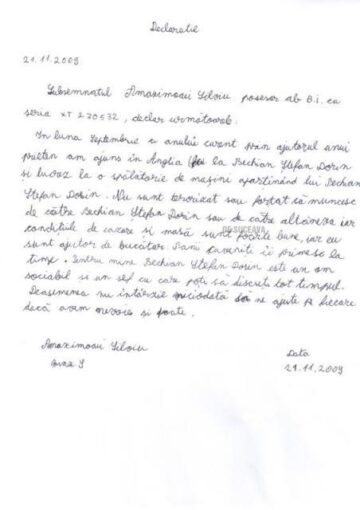 Declaratie
21.11.2009
Subsemnatul Amaximoaii Silviu posesor al B.i. cu
seria XT 270532, declar următoarele:
În luna Septembrie a anului curent prin ajutorul unui
prieten am ajuns în Anglia la Bechian Ștefan Dorin
și lucrez la o spălătorie de mașini aparținând lui Bechian
Ștefan Dorin. Nu sunt terorizat sau forțat să muncesc
de către Bechian Ștefan Dorin sau de către altcineva iar
condițiile de cazare și masă sunt foarte bune, iar eu
sunt ajutor de bucătar. Banii cuveniți îi primesc la
timp. Pentru mine Bechian Ștefan Dorin este un om
sociabil și un șef cu care poți să discuți tot timpul.
Deasemenea nu întârzie niciodată să ne ajute pe fiecare
dacă avem nevoie și poate.
OG SUCEAVA
Amaximoaii Silviu
Data
21.11.2009